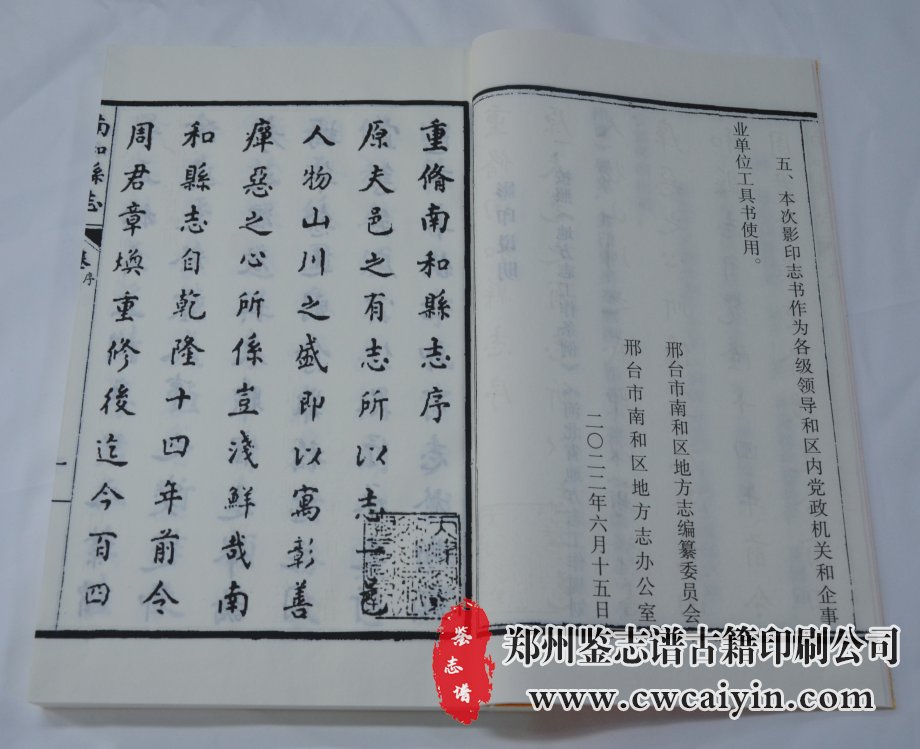 五、本次影印志书作为各级领导和区内党政机关和企事
业单位工具书使用。
邢台市南和区地方志编纂委员会
邢台市南和区地方志办公室
二〇二二年六月十五日
重脩南和縣志序
原夫邑之有志所以志一邑
人物山川之盛即以寓彰善
癉惡之心所係豈淺鮮哉南
和縣志自乾隆十四年前令
周君章煥重修後迄今百四
南和縣志 序 一
鉴志谱
郑州鉴志谱古籍印刷公司
www.cwcaiyin.com